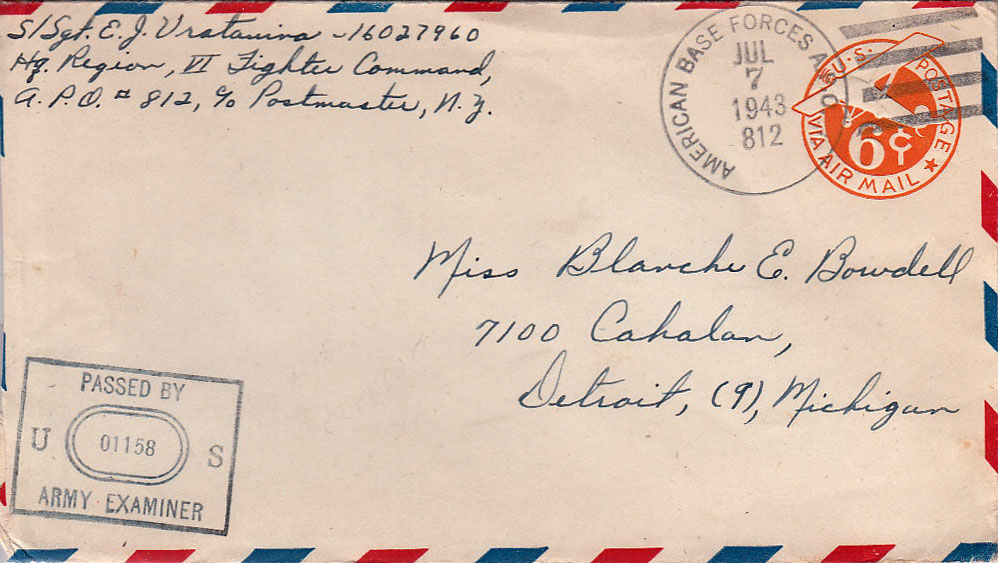 S/Sgt. E. J. Vratanina - 16027960
Hq. Region, VI Fighter Command,
A.P.O. # 812, c/o Postmaster, N.Y.
AMERICAN BASE FORCES A.P.O.
JUL
7
1943
812
U.S. POSTAGE
6¢
VIA AIR MAIL
Miss Blanche E. Bowdell
7100 Cahalan,
Detroit, (9), Michigan
PASSED BY
U 01158 S
ARMY EXAMINER